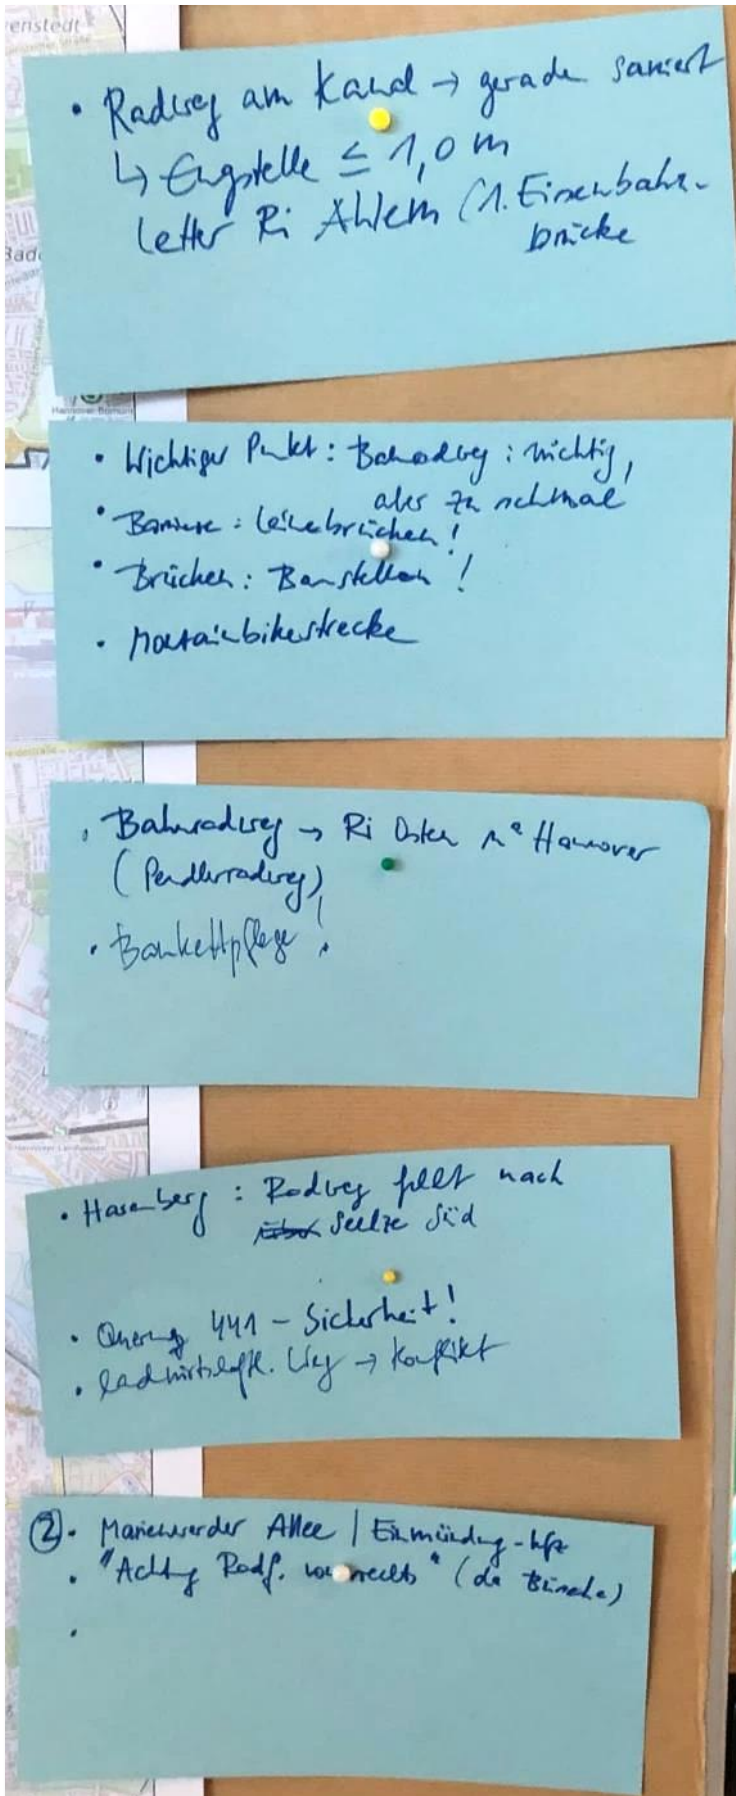 enstedt
• Radweg am Kanal → gerade saniert
↳ Engstelle ≤ 1,0 m
Letter Ri Ahlem (1. Eisenbahn-
brücke
Bade
• Wichtiger Punkt: Bahnradweg: wichtig,
aber zu schmal
• Barriere: Leinebrücken!
• Brücken: Baustellen!
• Mountainbikestrecke
• Bahnradweg → Ri Osten n. Hannover
(Pendlerradweg)
• Bankettpflege!
• Hasenberg: Radweg fehlt nach
Seelze Süd
• Querung 441 - Sicherheit!
• landwirtschaftl. Weg → Konflikt
② • Marienwerder Allee / Einmündung - Kfz
• "Achtung Radf. von rechts" (da Büsche)
•